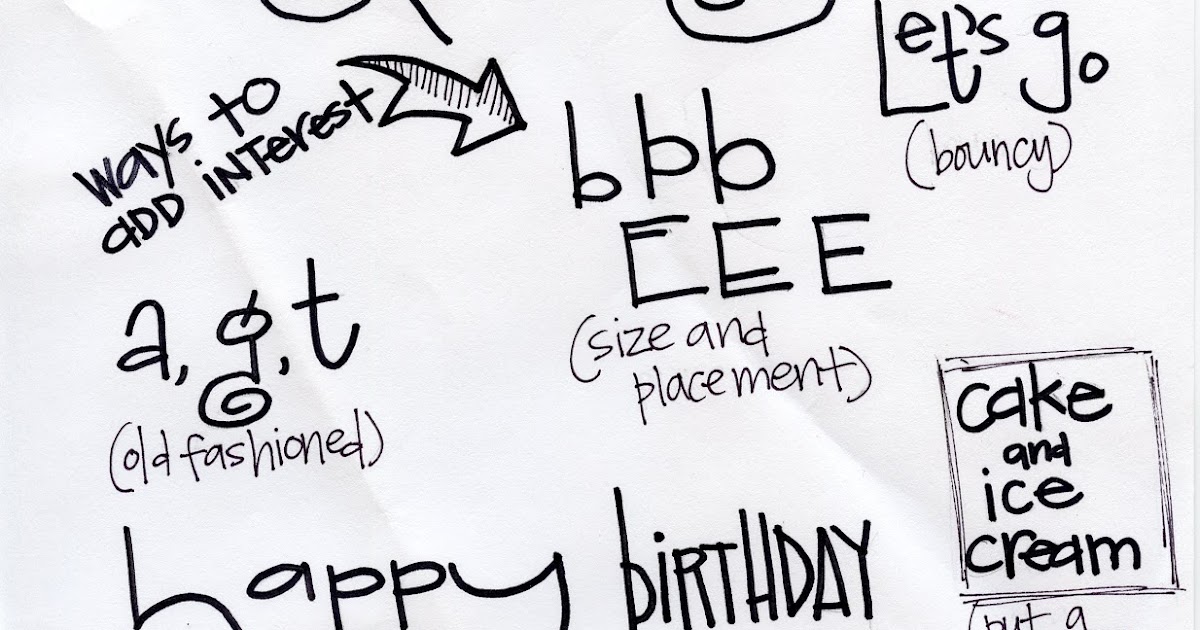 Let's go
ways to
add interest
b b b
(bouncy)
E E E
a, g, t
(size and
placement)
(old fashioned)
cake
and
ice
cream
happy BIRTHDAY
(put a